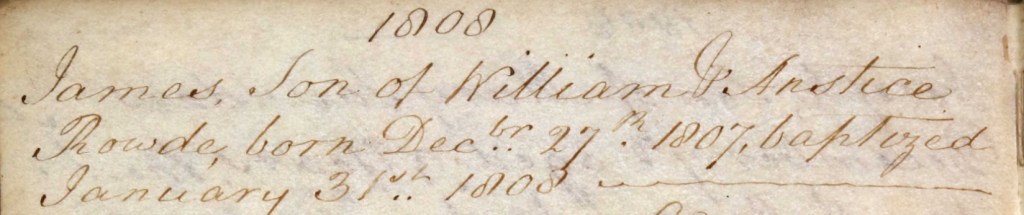 1808
James, Son of William & Anstice
Rowde, born Decbr. 27th. 1807, baptized
January 31st. 1808